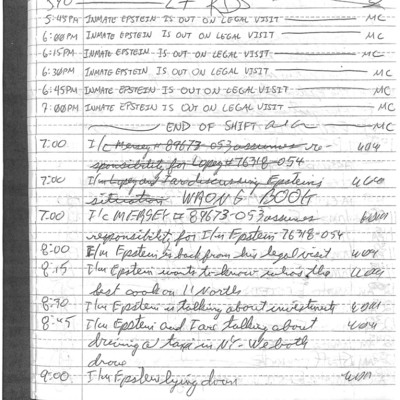 5:45PM INMATE EPSTEIN IS OUT ON LEGAL VISIT MC
6:00PM INMATE EPSTEIN IS OUT ON LEGAL VISIT MC
6:15PM INMATE EPSTEIN IS OUT ON LEGAL VISIT MC
6:30PM INMATE EPSTEIN IS OUT ON LEGAL VISIT MC
6:45PM INMATE EPSTEIN IS OUT ON LEGAL VISIT MC
7:00PM INMATE EPSTEIN IS OUT ON LEGAL VISIT MC
END OF SHIFT MC
7:00 I/c Mersey # 89673-053 assumes re-
sponsibility for Lopez # 76318-054
7:00 I/m Lopez and I are discussing Epstein's
situation WRONG BOOK
7:00 I/c MERSEY # 89673-053 assumes
responsibility for I/m Epstein 76318-054
8:00 I/m Epstein is back from his legal visit
8:15 I/m Epstein wants to know who's the
best cook on 11 North
8:30 I/m Epstein is talking about investments
8:45 I/m Epstein and I are talking about
driving a taxi in NY - We both
drove
9:00 I/m Epstein lying down